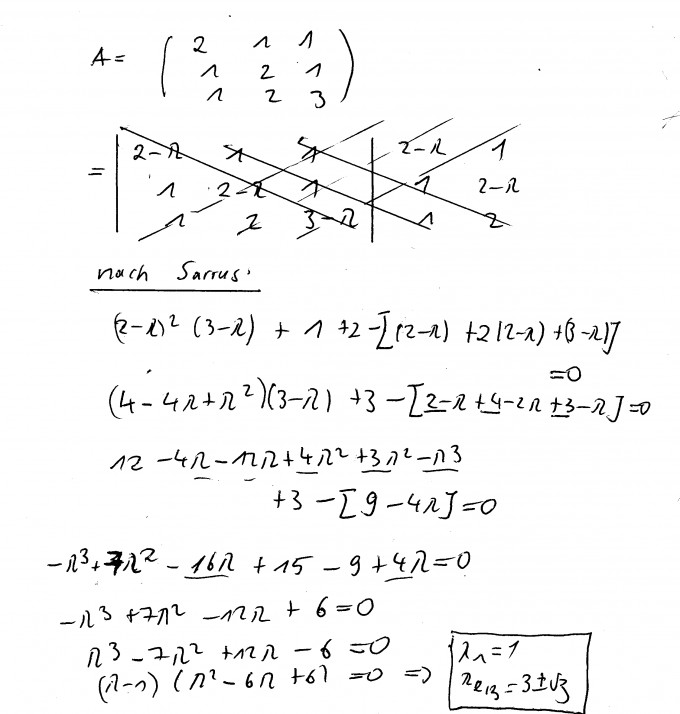 A = ( 2 1 1
1 2 1
1 2 3 )
= | 2-λ 1 1 | 2-λ 1
1 2-λ 1 | 1 2-λ
1 2 3-λ | 1 2
nach Sarrus:
(2-λ)² (3-λ) + 1 + 2 - [(2-λ) + 2(2-λ) + (3-λ)]
=0
(4 - 4λ + λ²)(3-λ) + 3 - [2-λ + 4-2λ + 3-λ] = 0
12 - 4λ - 12λ + 4λ² + 3λ² - λ3
+3 - [9 - 4λ] = 0
-λ³ + 7λ² - 16λ + 15 - 9 + 4λ = 0
-λ³ + 7λ² - 12λ + 6 = 0
λ³ - 7λ² + 12λ - 6 = 0
(λ-1) (λ² - 6λ + 6) = 0 => λ1 = 1
λ2/3 = 3 ± √3